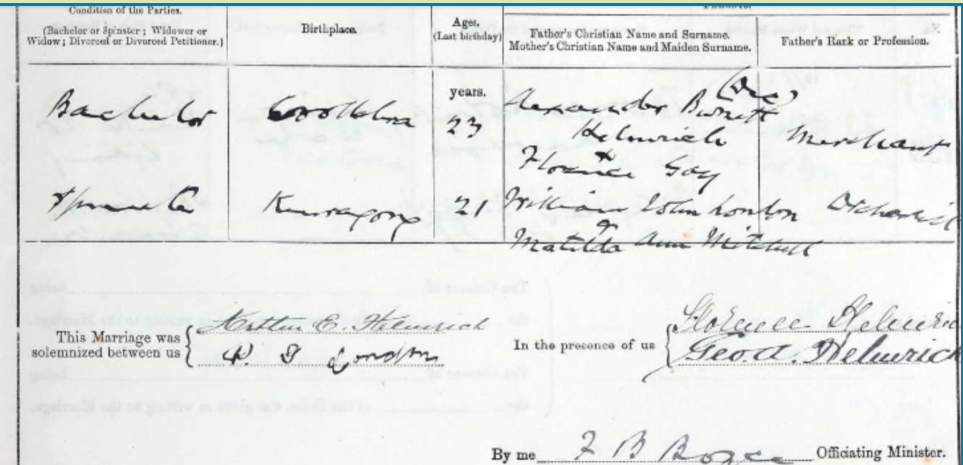 Condition of the Parties.
(Bachelor or Spinster; Widower or Widow; Divorced or Divorced Petitioner.)
Birthplace.
Ages.
(Last birthday)
Parents.
Father's Christian Name and Surname.
Mother's Christian Name and Maiden Surname.
Father's Rank or Profession.
years.
Bachelor
23
Alexander Burnett (Dec)
Helmrich
Merchant
+
Florence Gay
Spinster
Kurrajong
21
William John London
Orchardist
Matilda Ann Mitchell
This Marriage was solemnized between us
Arthur E. Helmrich
London
In the presence of us
Florence Helmrich
Geo A. Helmrich
By me F B Boyce Officiating Minister.